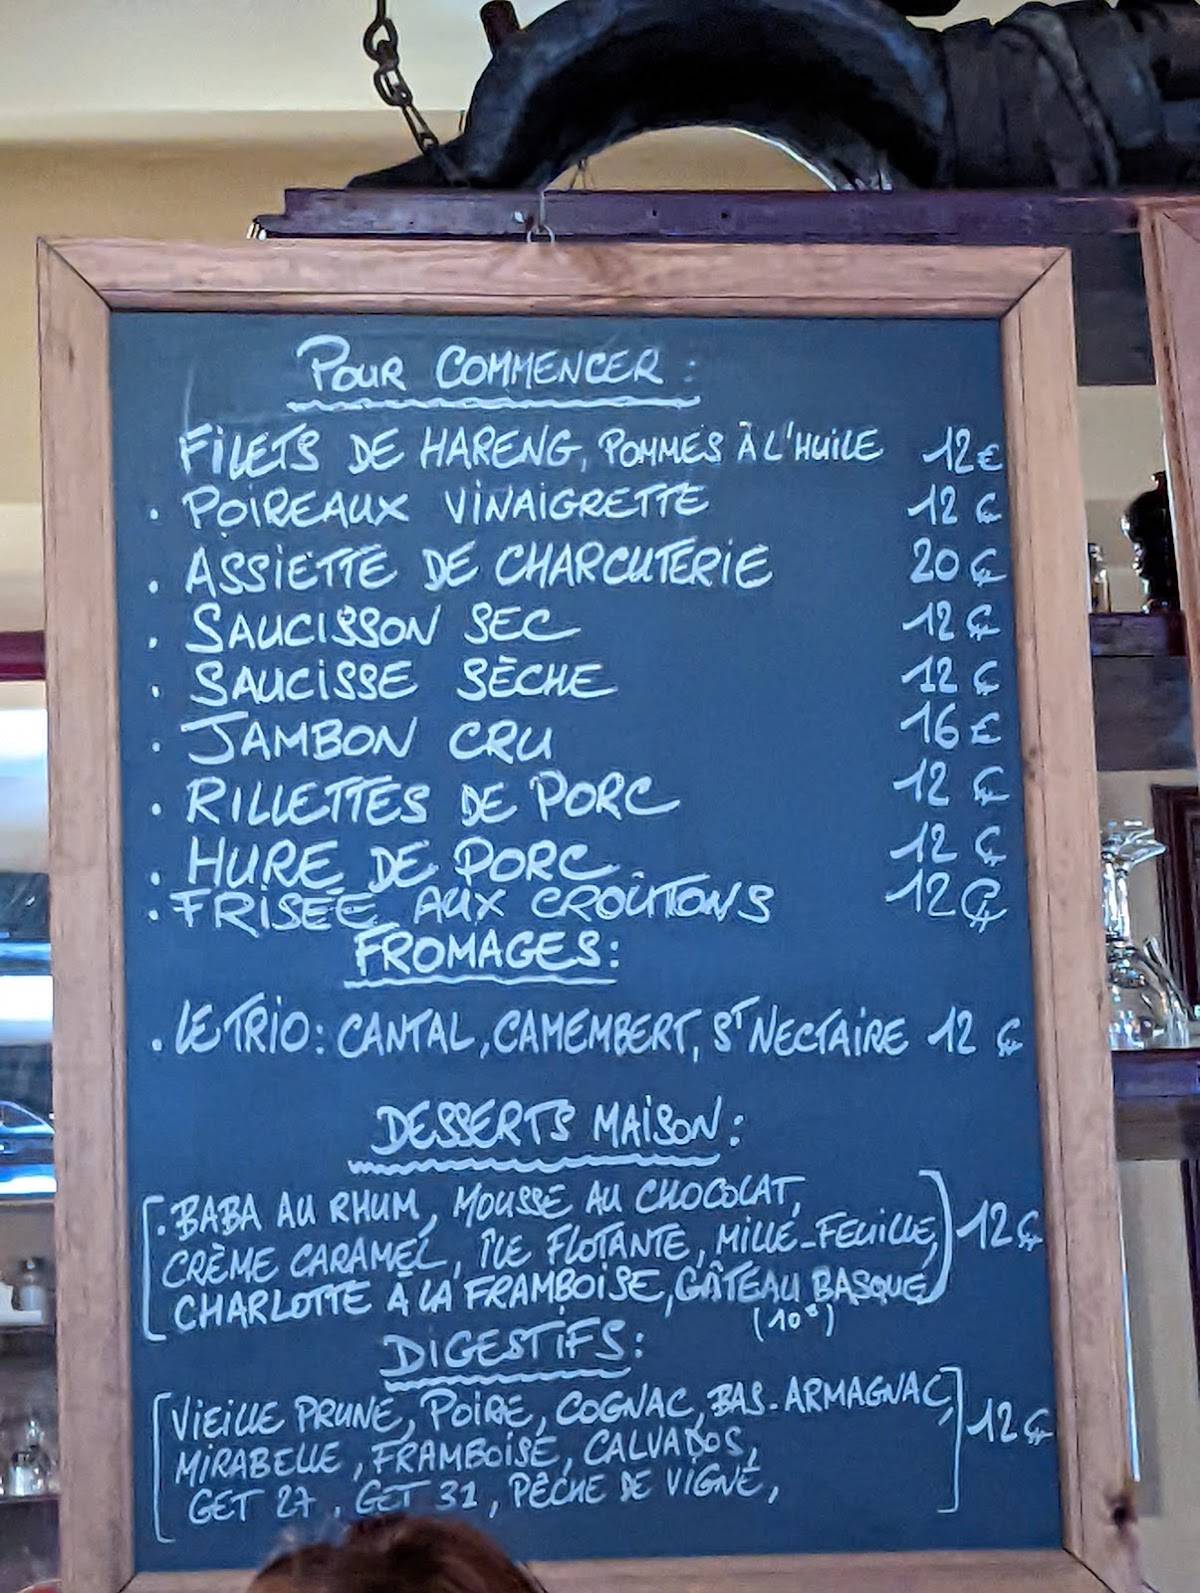 POUR COMMENCER :
FILETS DE HARENG, POMMES À L'HUILE 12€
. POIREAUX VINAIGRETTE 12 €
. ASSIETTE DE CHARCUTERIE 20 €
. SAUCISSON SEC 12 €
. SAUCISSE SÈCHE 12 €
. JAMBON CRU 16 €
. RILLETTES DE PORC 12 €
. HURE DE PORC 12 €
. FRISÉE AUX CROÛTONS 12€
FROMAGES :
. LE TRIO : CANTAL, CAMEMBERT, ST NECTAIRE 12 €
DESSERTS MAISON :
[. BABA AU RHUM, MOUSSE AU CHOCOLAT,
CRÈME CARAMEL, ÎLE FLOTANTE, MILLE-FEUILLE, ] 12€
CHARLOTTE À LA FRAMBOISE, GÂTEAU BASQUE
(10€)
DIGESTIFS :
[VIEILLE PRUNE, POIRE, COGNAC, BAS-ARMAGNAC, ] 12€
MIRABELLE, FRAMBOISE, CALVADOS,
GET 27, GET 31, PÊCHE DE VIGNE,